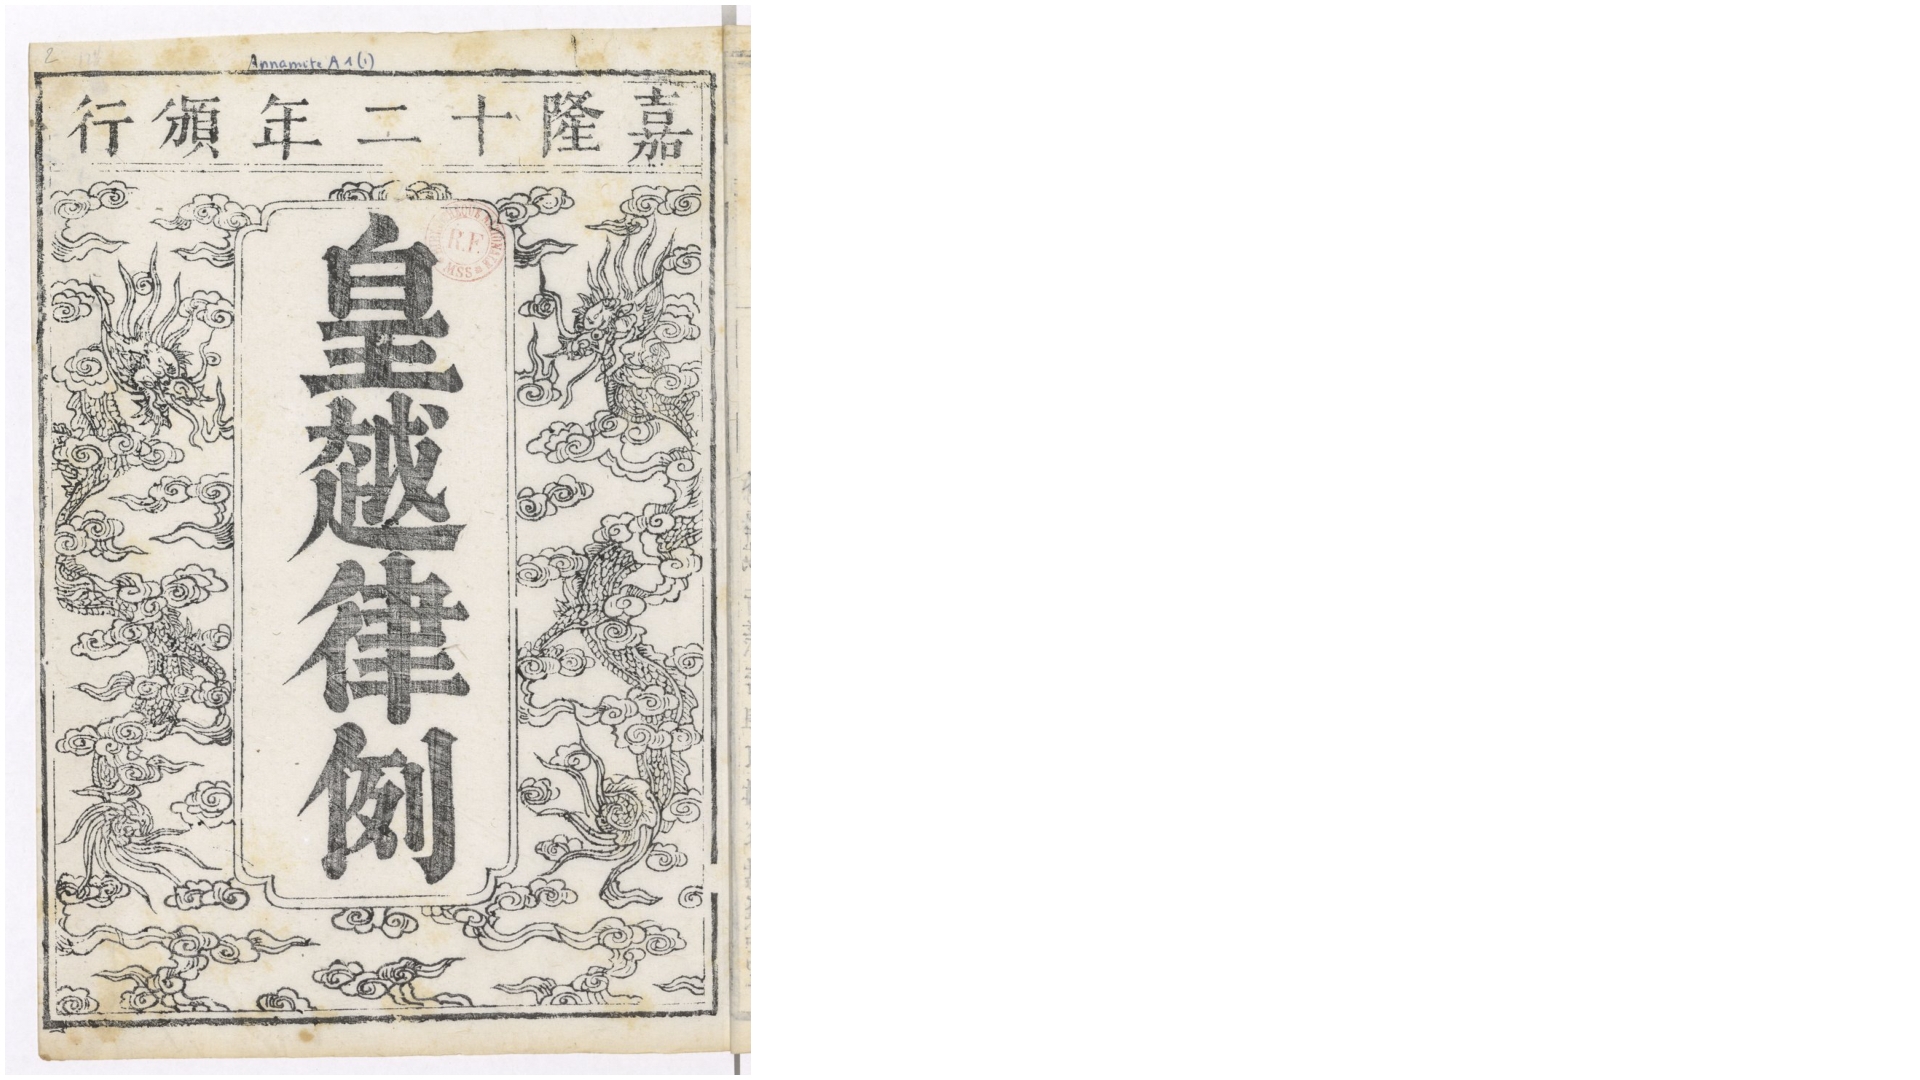 2
Annamite A 1 (1)
嘉隆十二年頒行
皇越律例
BIBLIOTHÈQUE NATIONALE MSS
R.F.